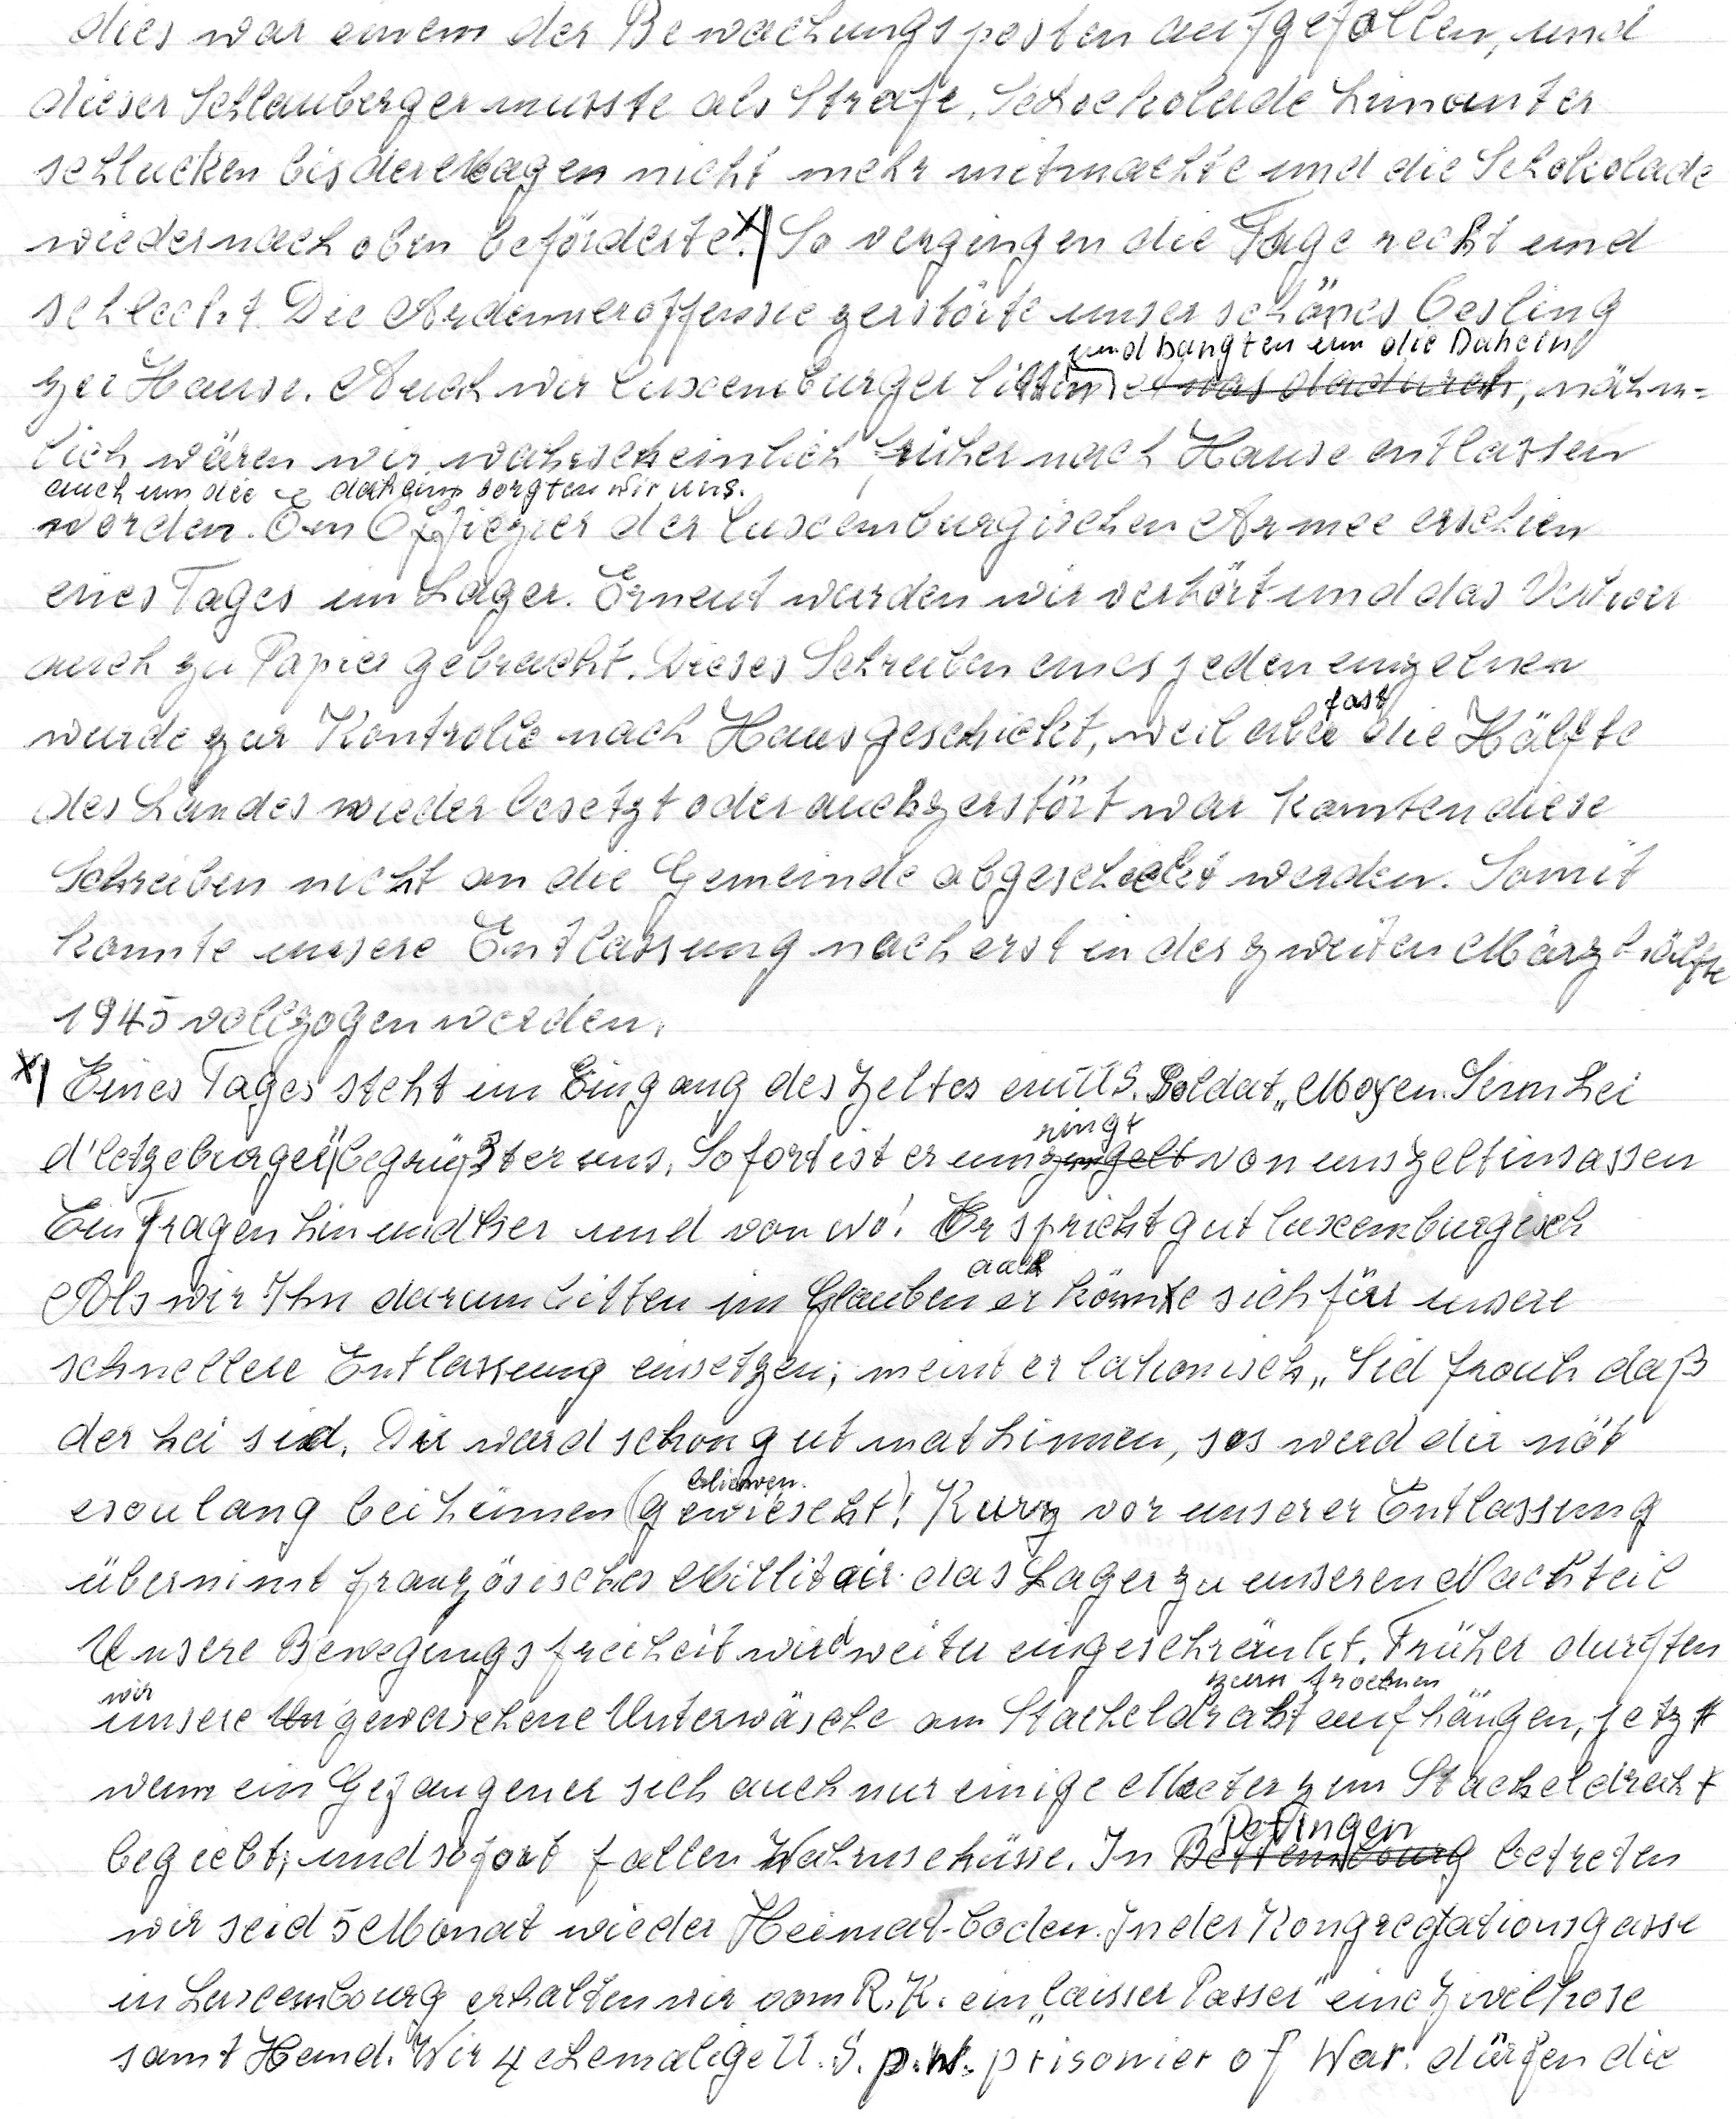 dies war einem der Bewachungsposten aufgefallen, und
dieser Schlauberger musste als Strafe, Schockolade hinunter
schlucken bis der Magen nicht mehr mitmachte und die Schokolade
wieder nach oben beförderte. x| So vergingen die Tage recht und
schlecht. Die Ardenneroffensie zerstörte unser schönes Oesling
und bangten um die Daheim
zu Hause. Auch wir Luxemburger litten etwas dadurch, nähm=
lich wären wir wahrscheinlich früher nach Hause entlassen
auch um die daheim sorgten wir uns.
worden. Ein Offiezier der Luxemburgischen Armee erschien
eines Tages im Lager. Erneut wurden wir verhört und das Verhoer
auch zu Papier gebracht. Dieses Schreiben eines jeden einzelnen
fast
wurde zur Kontrolle nach Haus geschickt, weil aber die Hälfte
des Landes wieder besetzt oder auch zerstört war konnten diese
Schreiben nicht an die Gemeinde abgeschickt werden. Somit
konnte unsere Entlassung nach erst in der zweiten Märzhälfte
1945 vollzogen werden.
x| Eines Tages steht im Eingang des Zeltes ein U.S. Soldat „Moyen. Sinn hei
ringt
d'letzeburger" begrüßt er uns. Sofort ist er umzingelt von uns Zeltinsassen
Ein Fragen hin und her und von wo! Er spricht gut luxemburgisch
auch
Als wir Ihn darum bitten im Glauben er könnte sich für unsere
schnellere Entlassung einsetzen, meint er lakonisch „Sid frouh daß
der hei sid. Dir ward schon gut mat hinnen, sos werd dir nöt
bliewen.
esou lang bei hinnen (gewiescht! Kurz vor unserer Entlassung
übernimt französisches Millitair das Lager zu unseren Nachteil
Unsere Bewegungsfreiheit wird weiter eingeschränkt. Früher durften
wir zum trocknen
unsere Un gewaschene Unterwäsche am Stacheldraht aufhängen, jetzt
wenn ein Gefangener sich auch nur einige Meter zum Stacheldraht
Petingen
begiebt, und sofort fallen Wahrnschüsse. In Bettembourg betreten
wir seid 5 Monat wieder Heimat-boden. In der Kongregationsgasse
in Luxembourg erhalten wir vom R.K. ein „laisser Passer" eine Zivilhose
samt Hemd. Wir 4 ehemalige U.S. p.w. prisonier of War. dürfen die